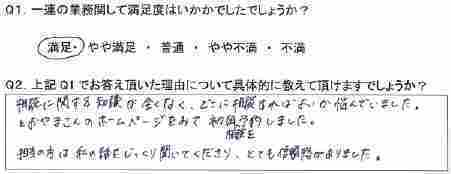 Q1. 一連の業務関して満足度はいかかでしたでしょうか?
満足・ やや満足 ・ 普通 ・ やや不満 ・ 不満
Q2. 上記Q1でお答え頂いた理由について具体的に教えて頂けますでしょうか?
相談に関する知識が全くなく、どこに相談すればよいか悩んでいました。
とおやまさんのホームページをみて初回予約しました。
担当の方は私の話をじっくり聞いてくださり、とても信頼感がありました。